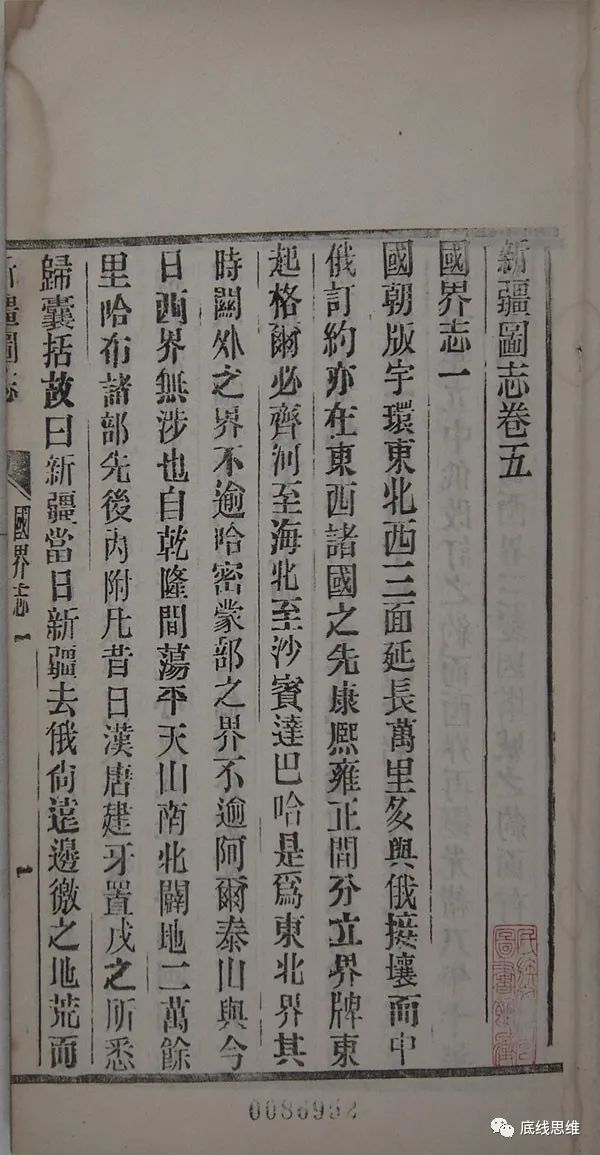 新疆圖志卷五
國界志一
國朝版宇環東北西三面延長萬里多與俄接壤而中
俄訂約亦在東西諸國之先康熙雍正間分立界牌東
起格爾必齊河至海北至沙賓達巴哈是爲東北界其
時關外之界不逾哈密蒙部之界不逾阿爾泰山與今
日西界無涉也自乾隆間蕩平天山南北闢地二萬餘
里哈布諸部先後內附凡昔日漢唐建牙置戍之所悉
歸囊括故曰新疆當日新疆去俄尙遠邊徼之地荒而
新疆圖志
國界志一
一
0086952
底线思维